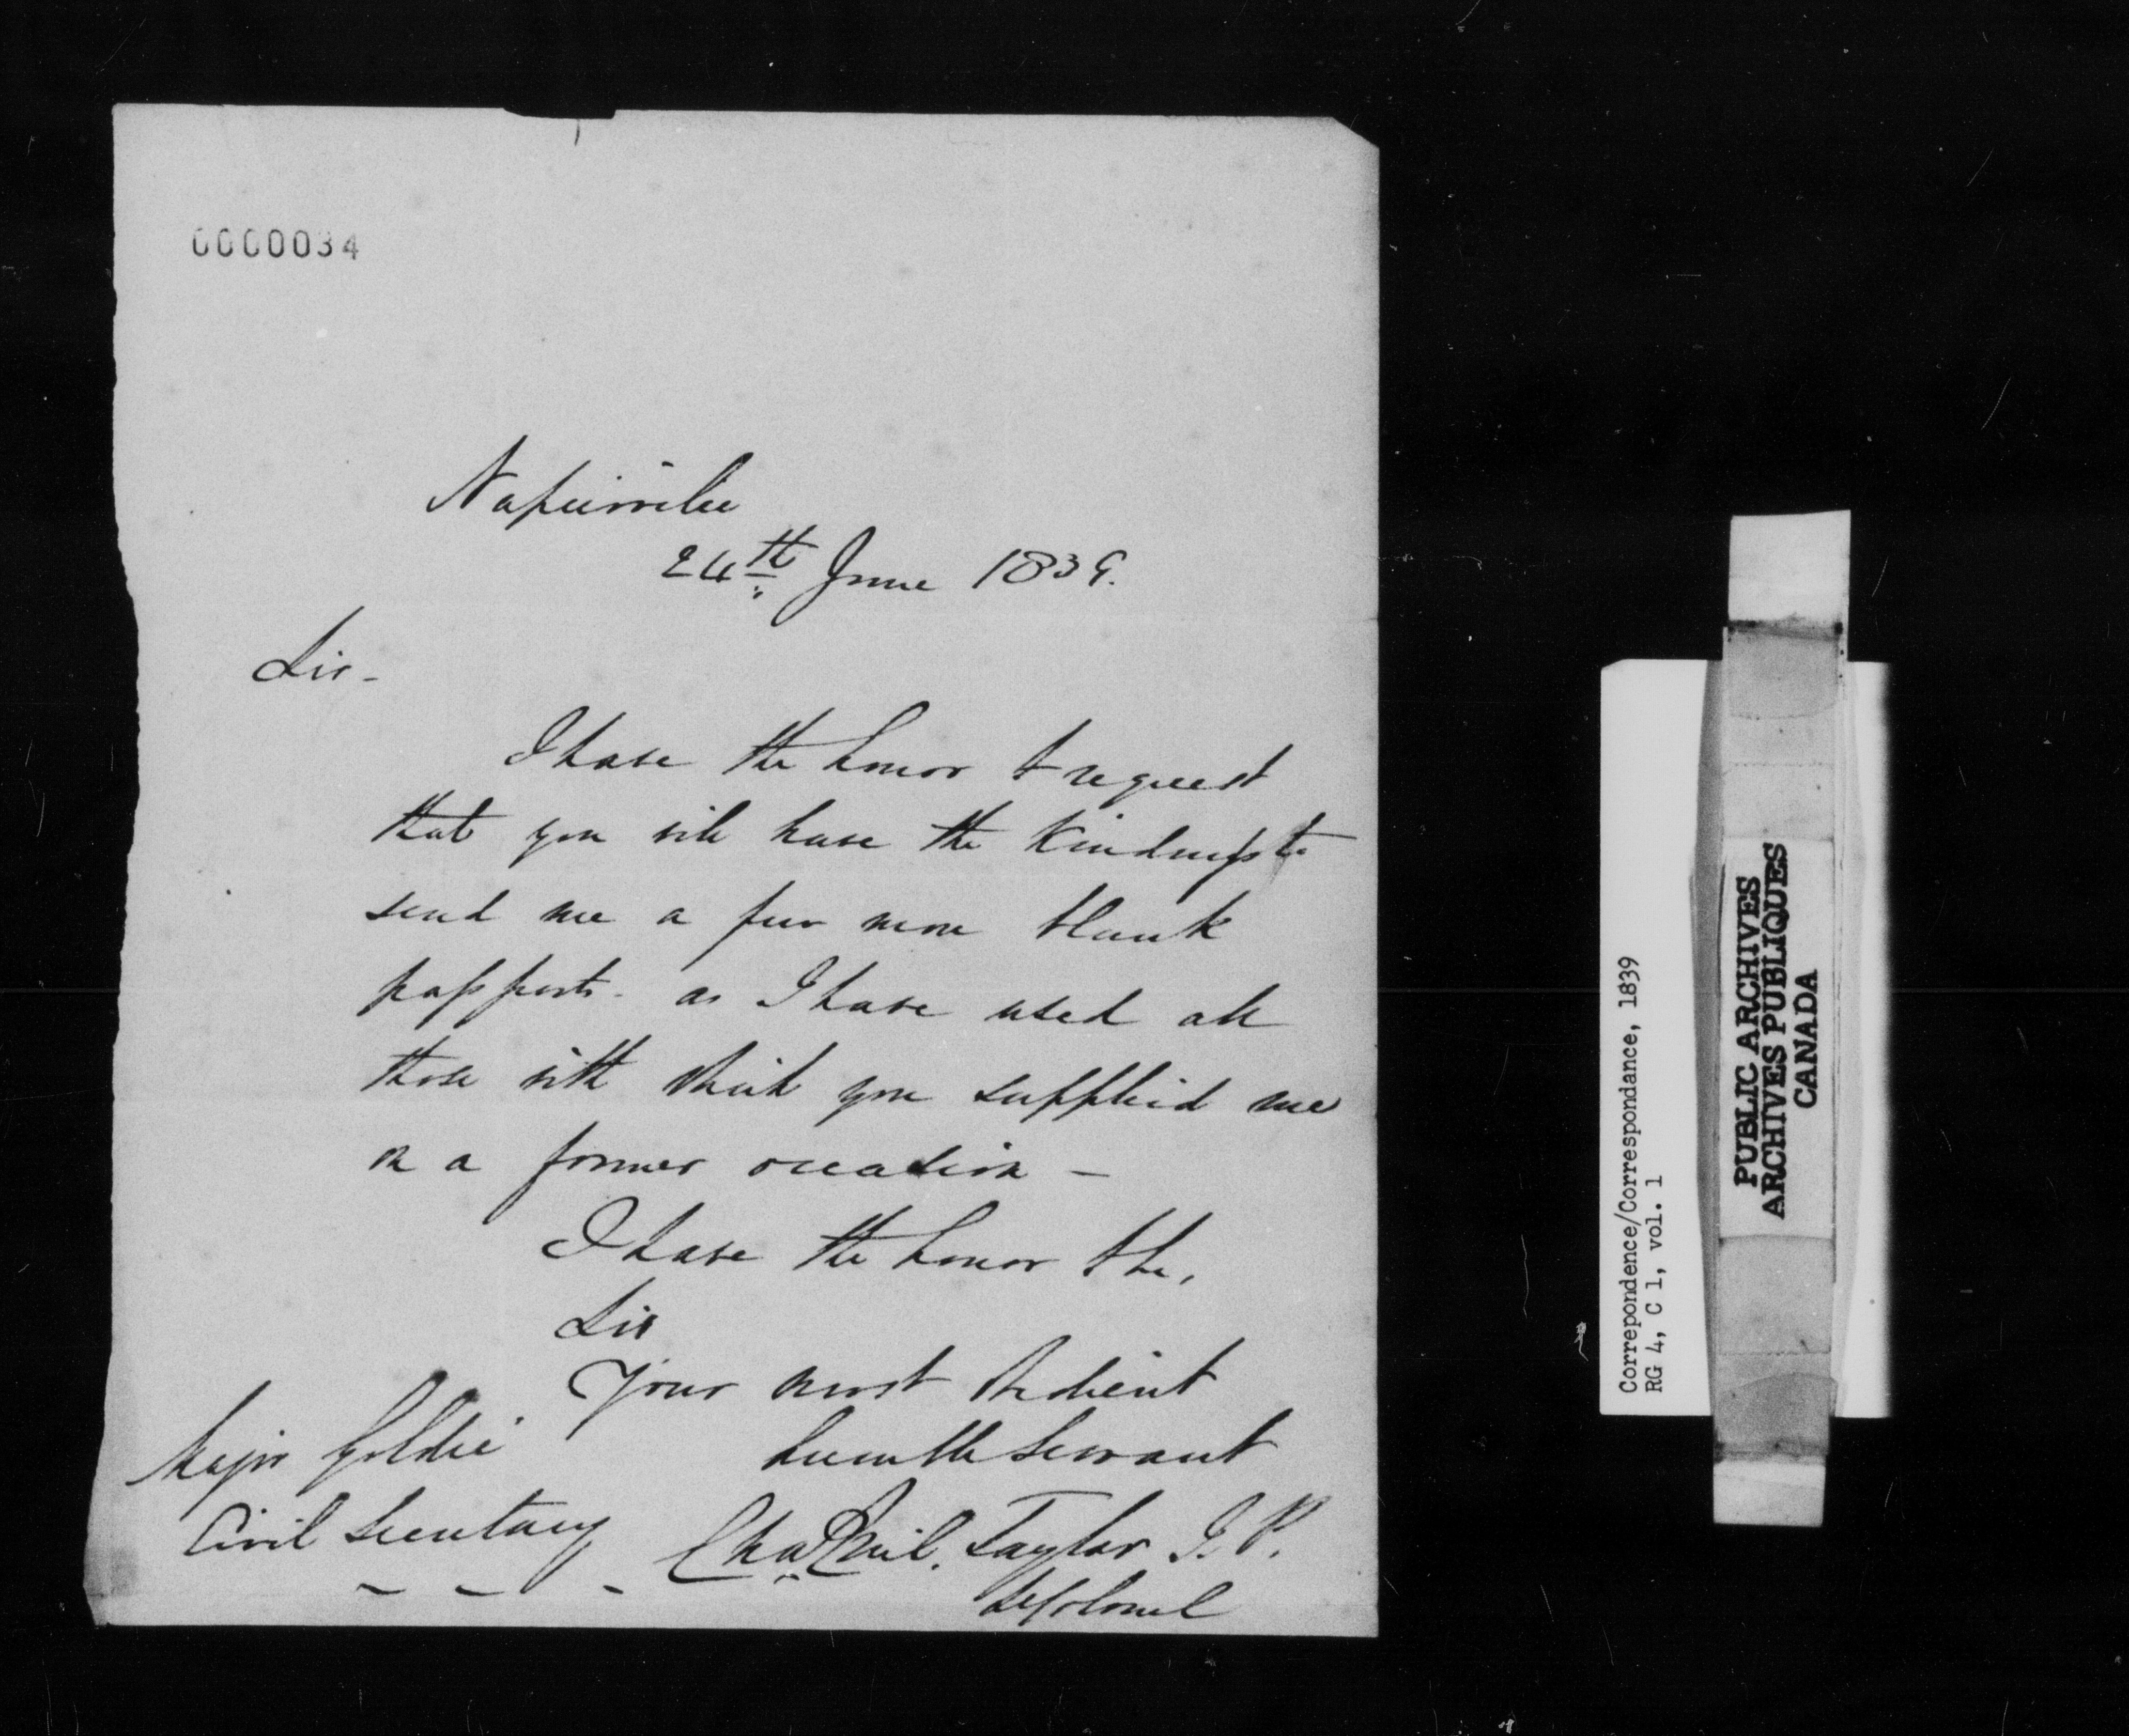 0000034
Napierville
24th June 1839.
Sir-
I have the honor to request
that you will have the kindness to
send me a few more blank
passports- as I have used all
those with which you supplied me
on a former occasion —
I have the honor to be,
Sir
Your most obedient
humble servant
Major Goldie
Civil Secretary
Taylor J. P.
Lt Colonel
Correpondence/Correspondance, 1839
RG 4, C 1, vol. 1
PUBLIC ARCHIVES
ARCHIVES PUBLIQUES
CANADA